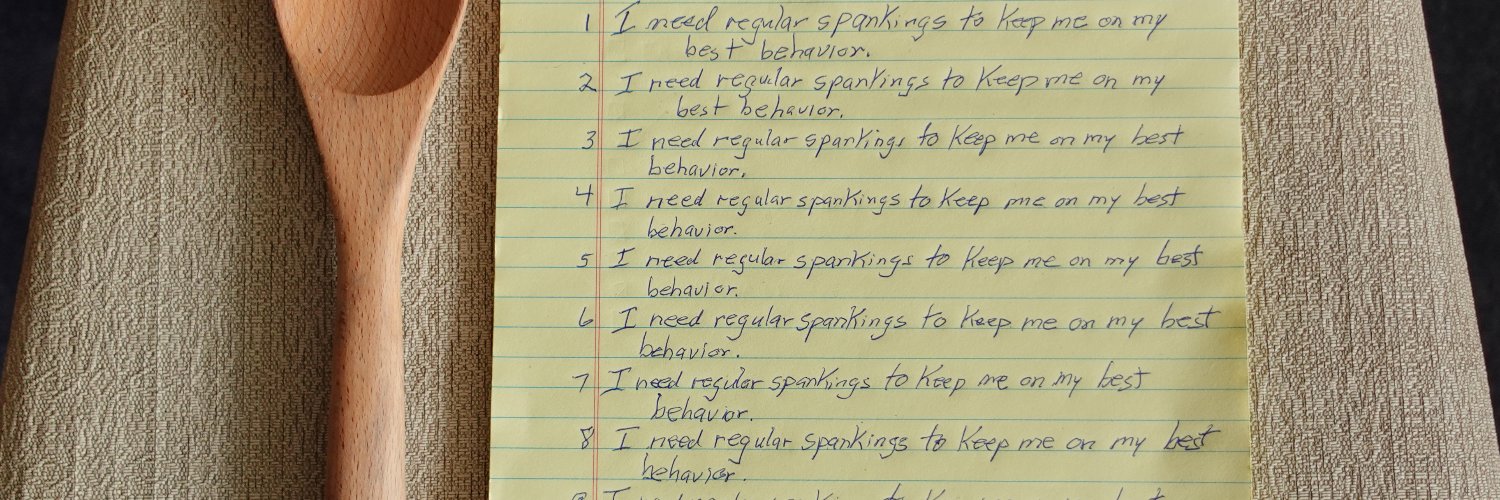 1 I need regular spankings to keep me on my
best behavior.
2 I need regular spankings to keep me on my
best behavior.
3 I need regular spankings to keep me on my best
behavior.
4 I need regular spankings to keep me on my best
behavior.
5 I need regular spankings to keep me on my best
behavior.
6 I need regular spankings to keep me on my best
behavior.
7 I need regular spankings to keep me on my best
behavior.
8 I need regular spankings to keep me on my best
behavior.